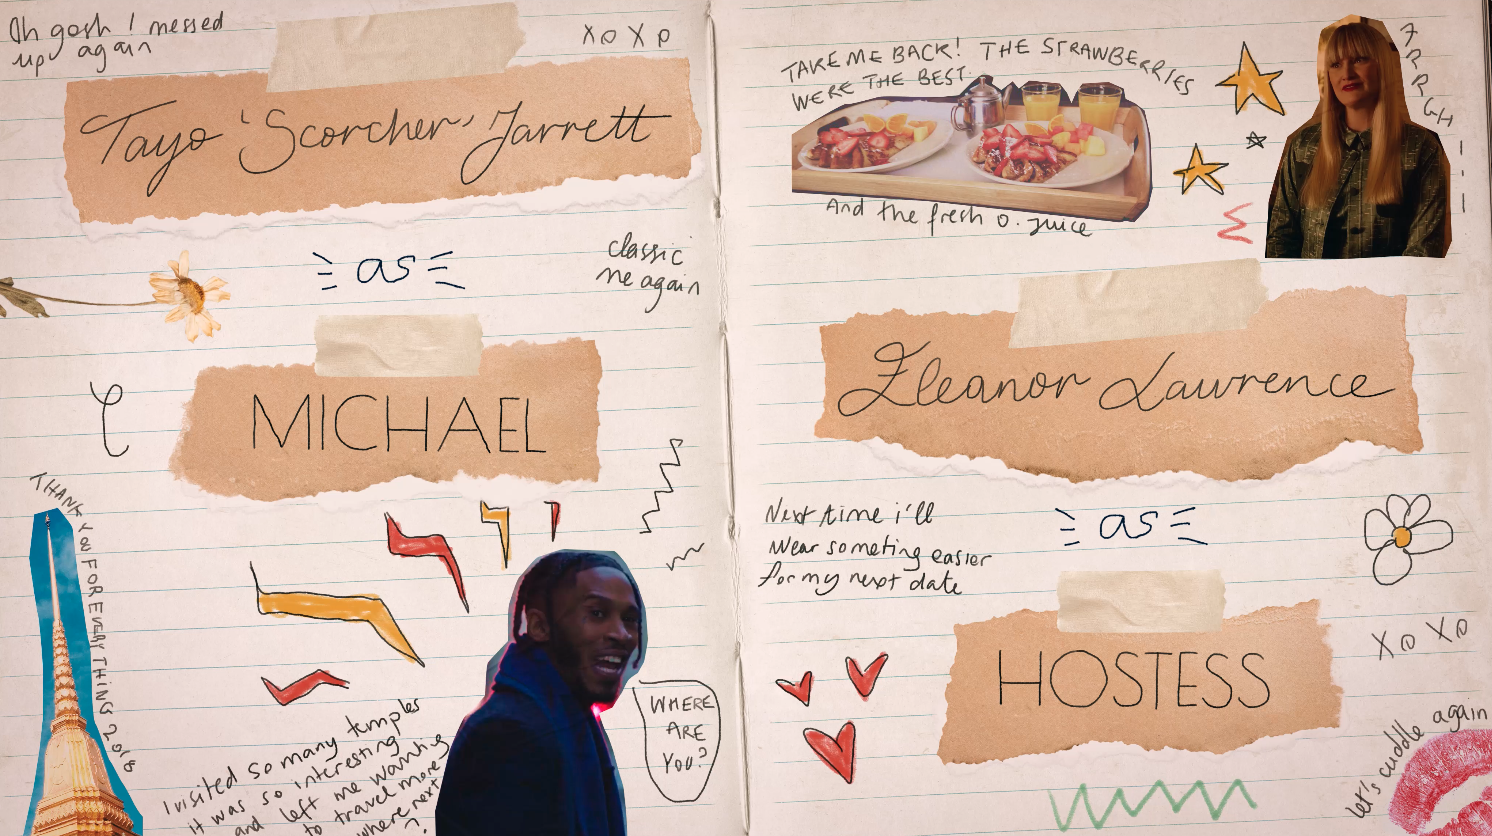 Oh gosh I messed
up again
XOXO
Tayo 'Scorcher' Jarrett
as
classic
me again
MICHAEL
THANK YOU FOR EVERYTHING 2018
I visited so many temples
it was so interesting
and left me wanting
to travel more
where next
?
WHERE
ARE
YOU?
TAKE ME BACK! THE STRAWBERRIES
WERE THE BEST.
And the fresh O. Juice
FRRRGH
Eleanor Lawrence
Next time i'll
Wear someting easier
for my next date
as
XOXO
HOSTESS
let's cuddle again